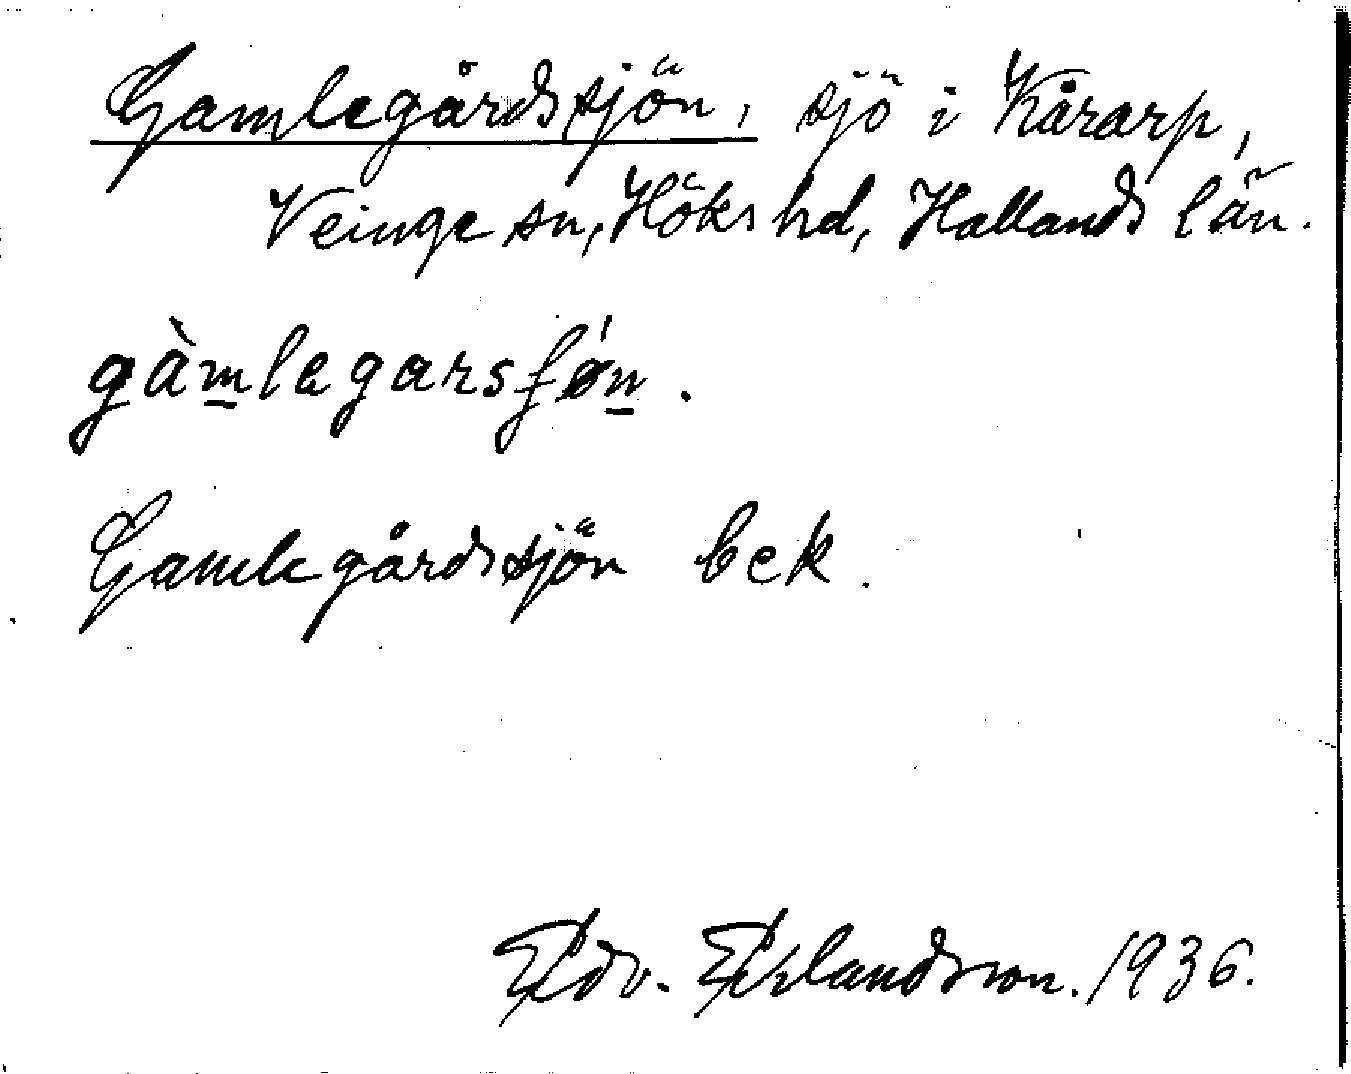 Gamlegårdssjön, sjö i Kårarp,
Veinge sn, Höks hd, Hallands län.
gàmlegarsʃǿn.
Gamlegårdssjön bek.
Edv. Erlandsson. 1936.